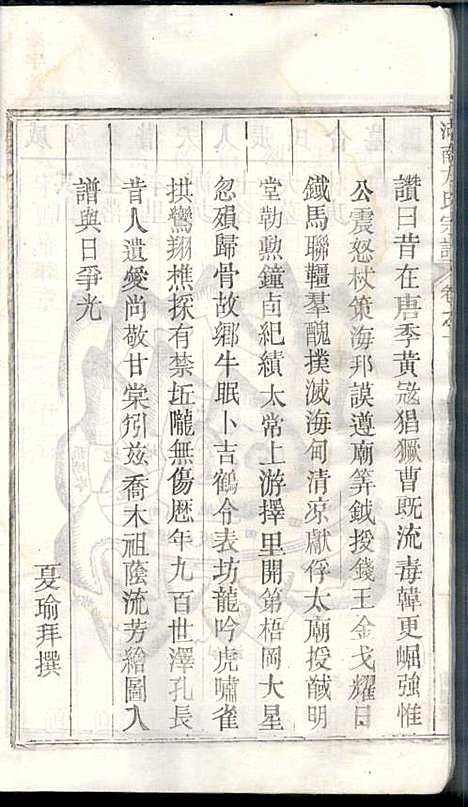 湖南方氏宗譜 卷之
讚曰昔在唐季黃寇猖獗曹旣流毒韓更崛強惟
公震怒杖策海邦謨遵廟筭鉞授錢王金戈耀日
鐵馬聯韁羣醜撲滅海甸清涼獻俘太廟授馘明
堂勒勲鐘卣紀績太常上游擇里開第梧岡大星
忽殞歸骨故鄉牛眠卜吉鶴令表坊龍吟虎嘯雀
拱鸞翔樵採有禁坵隴無傷歷年九百世澤孔長
昔人遺愛尚敬甘棠矧兹喬木祖蔭流芳繪圖入
譜與日爭光
夏瑜拜撰